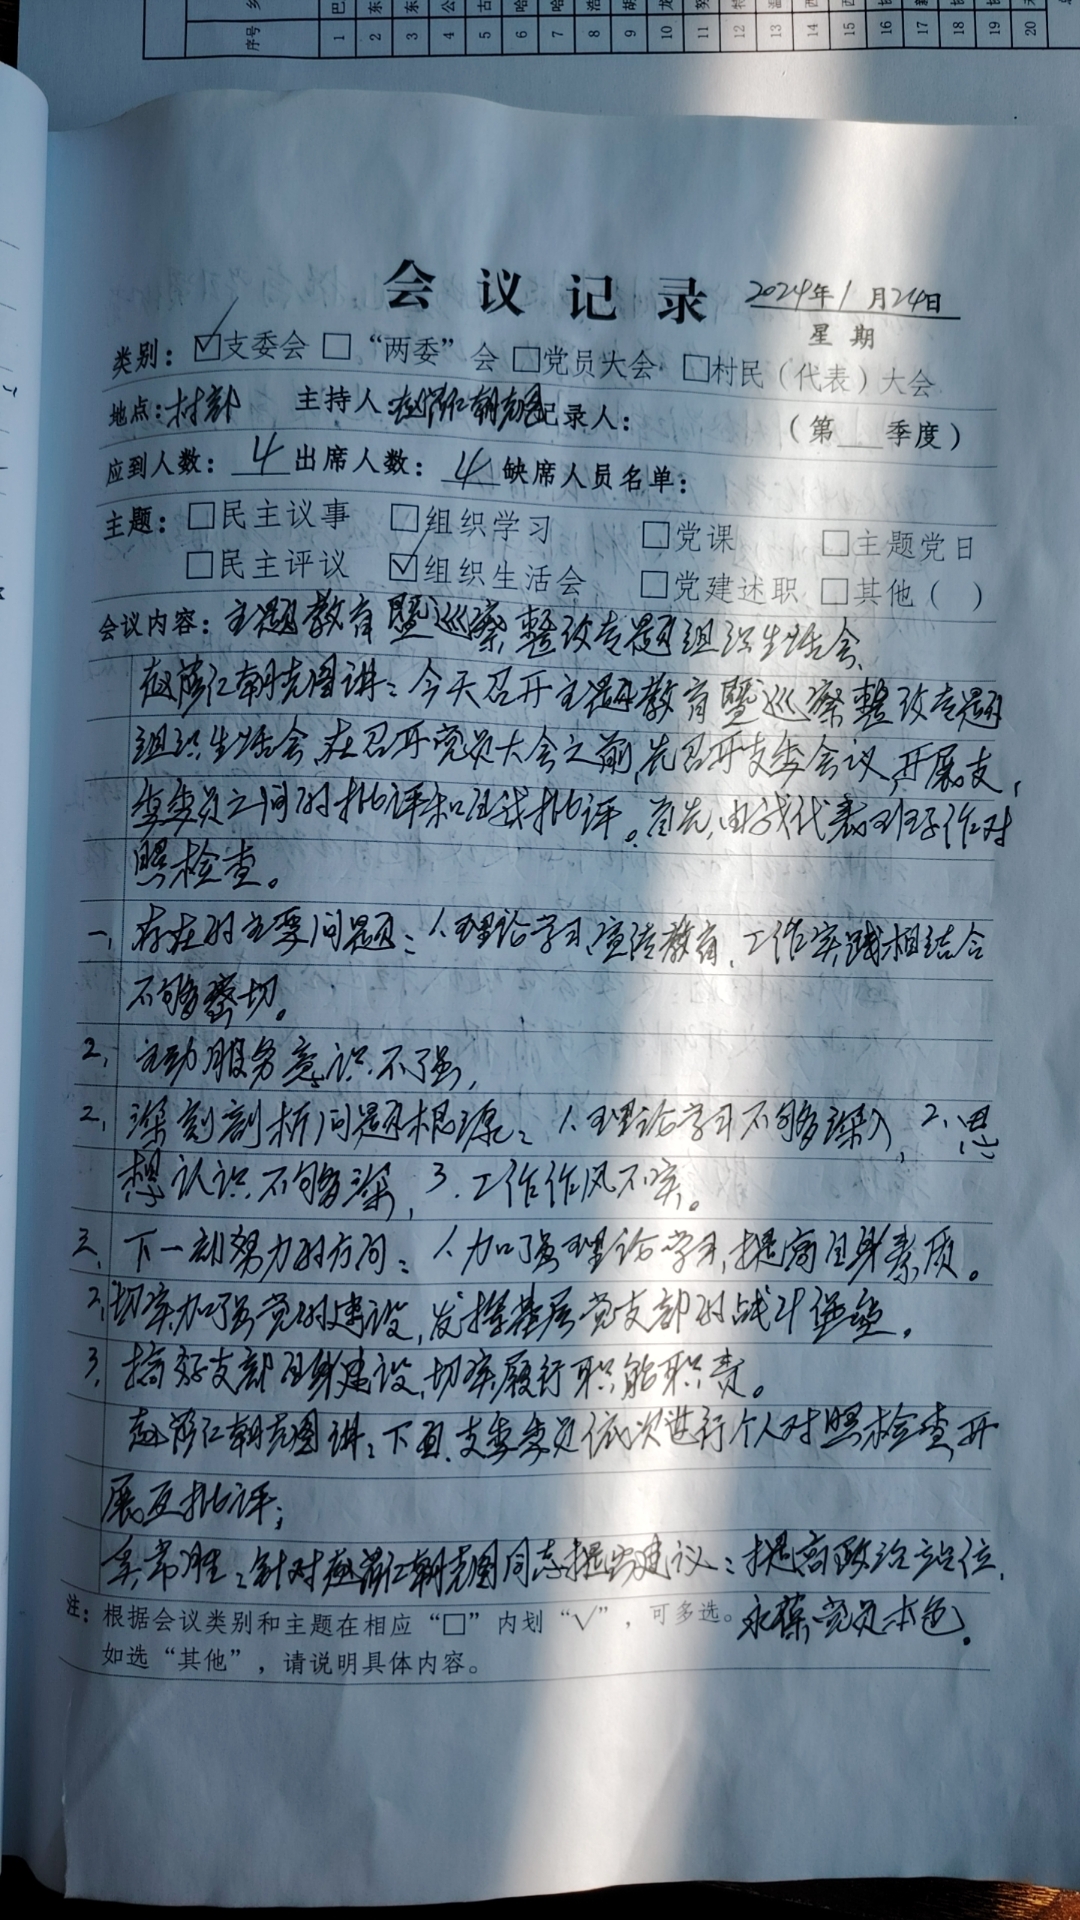 序号 1 2 3 4 5 6 7 8 9 10 11 12 13 14 15 16 17 18 19 20
会议记录 2024年1月24日
星期
类别：☑支委会 □“两委”会 □党员大会 □村民（代表）大会
地点：村部 主持人：朝克图 记录人： （第 季度）
应到人数：4 出席人数：4 缺席人员名单：
主题：□民主议事 □组织学习 □党课 □主题党日
□民主评议 ☑组织生活会 □党建述职 □其他（ ）
会议内容：主题教育暨巡察整改专题组织生活会。
朝克图讲：今天召开主题教育暨巡察整改专题
组织生活会，在召开党员大会之前，先召开支委会议，开展支
委委员之间的批评和自我批评。首先，由我代表班子作对
照检查。
一、存在的主要问题：1.理论学习、宣传教育、工作实践相结合
不够密切。
2、主动服务意识不强，
2、深刻剖析问题根源：1.理论学习不够深入，2、思
想认识不够深，3.工作作风不实。
三、下一部努力的方向：1.加强理论学习，提高自身素质。
2、切实加强党的建设，发挥基层党支部的战斗堡垒。
3、搞好支部自身建设，切实履行职能职责。
朝克图讲：下面，支委委员依次进行个人对照检查开
展互批评；
常胜：针对朝克图同志提出建议：提高政治站位，
永葆党员本色。
注：根据会议类别和主题在相应“□”内划“√”，可多选。
如选“其他”，请说明具体内容。